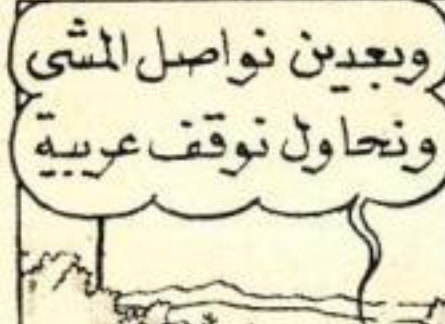 وبعدين نواصل المشى
ونحاول نوقف عربية